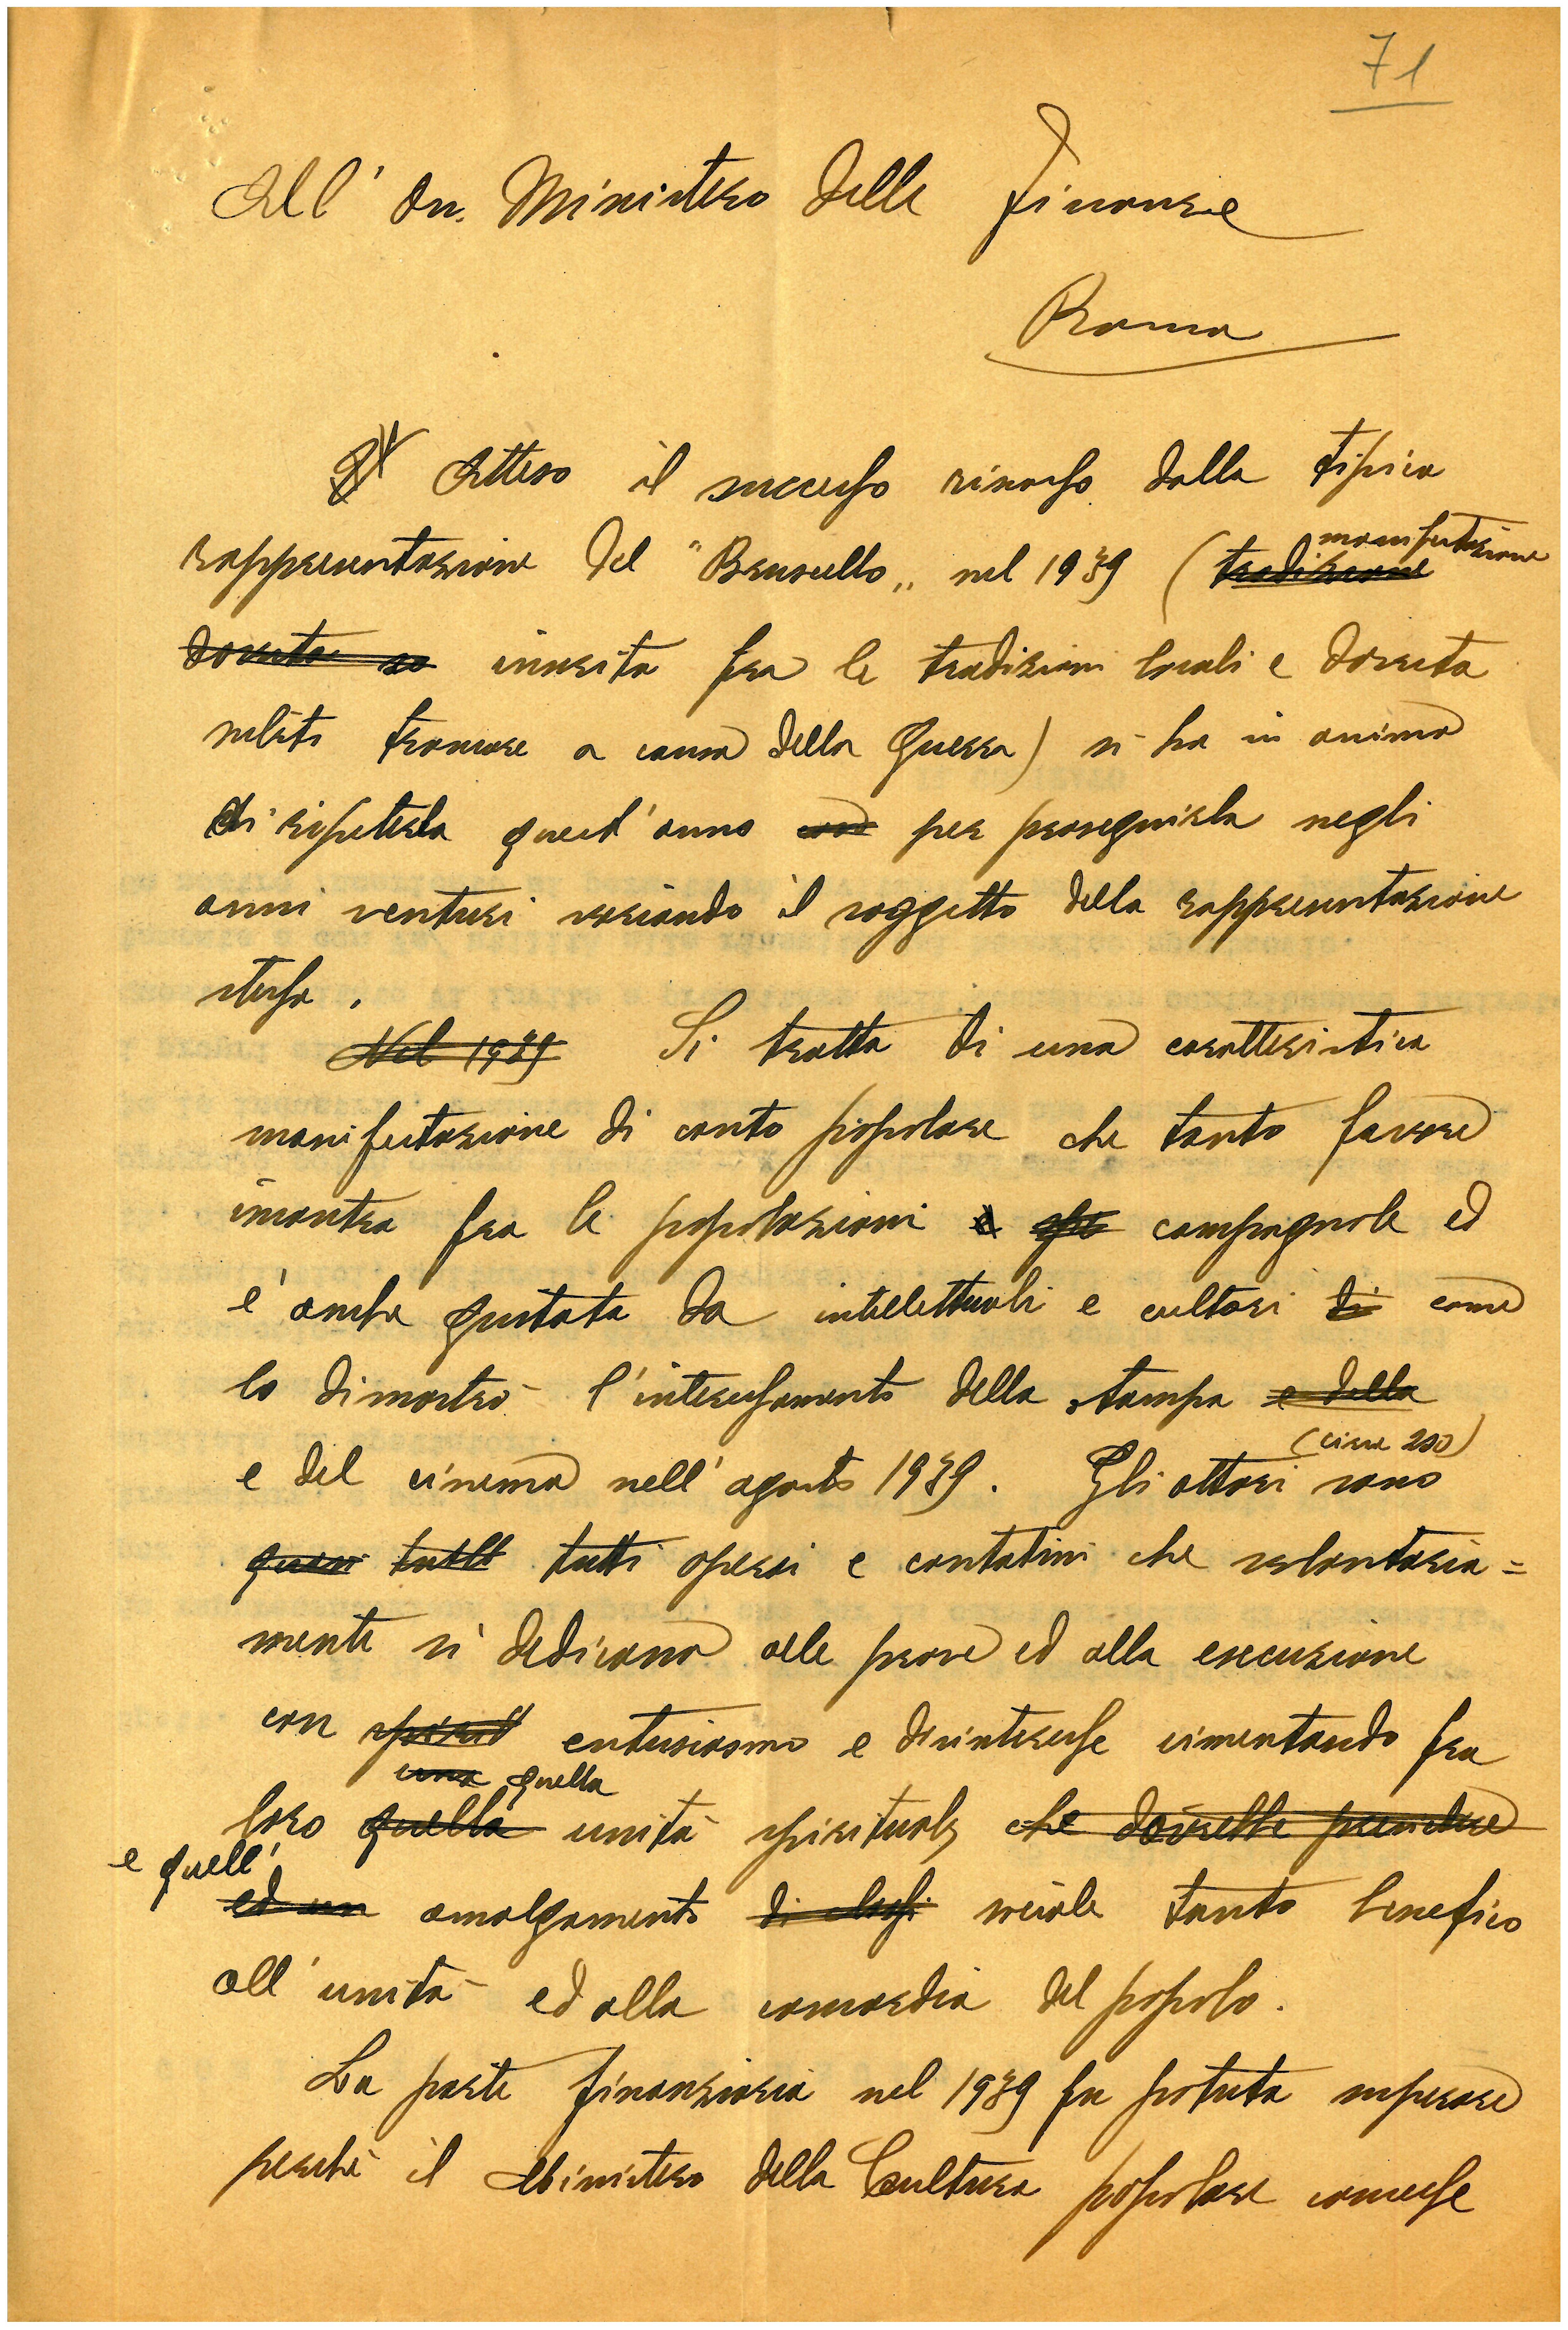 71
All' On. Ministero delle Finanze
Roma
Atteso il successo riscosso dalla tipica
manifestazione
rappresentazione del "Bruscello„ nel 1939 (tradizione
dovuta so inserita fra le tradizioni locali e dovuta
subito troncare a causa della guerra) si ha in animo
di ripeterla quest'anno per proseguirla negli
anni venturi variando il soggetto della rappresentazione
stessa.
Nel 1939 Si tratta di una caratteristica
manifestazione di canto popolare che tanto favore
incontra fra le popolazioni e campagnole ed
e' anche gustata da intellettuali e cultori di come
lo dimostrò l'interessamento della stampa e della
(circa 200)
e del cinema nell'agosto 1939. Gli attori sono
quasi tutti tutti operai e contatini che volontaria=
mente si dedicano alle prove ed alla esecuzione
con spirit entusiasmo e disinteresse cimentando fra
una quella
loro quella unità spirituale che dovrebbe prendere
e quell'
ed un amalgamento di classi sociale tanto benefico
all'unità ed alla concordia del popolo.
La parte finanziaria nel 1939 fu potuta superare
perchè il Ministero della Cultura popolare concesse